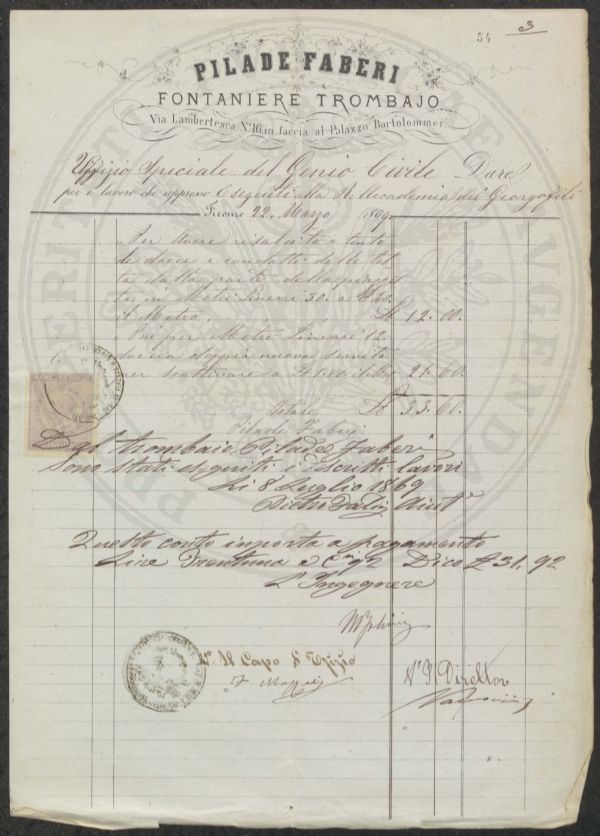 54
3
PILADE FABERI
FONTANIERE TROMBAJO
Via Lambertesca N.º 16 in faccia al Palazzo Bartolommei
Uffizio Speciale del Genio Civile Dare
per i lavori che appresso Eseguiti alla R. Accademia dei Georgofili
Firenze 22. Marzo 1869
Per Avere risalcito e tinto
docce e condotti delle
dalla parte della
in Metri lineari 30. a
il Metro, 12. 00.
Più per Metri Lineari 12.
doccia doppia nuova servita
per a 1. 80. 21. 60.
Totale 33. 60.
Pilade Faberi
Dal trombaio Pilade Faberi
Sono stati eseguiti i descritti lavori
Li 8 Luglio 1869
Pietro
Questo conto importa a pagamento
Lire Trentuna e C.mi 92 Dico £ 31. 92
L'Ingegnere
V.º Il Capo d'Ufizio
V.º Il Direttor